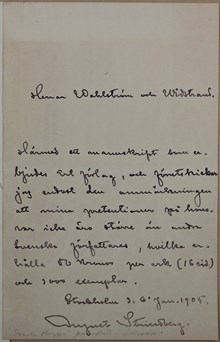 Herrar Wahlström och Widstrand.
Härmed ett manuskript som er-
bjudes till förlag, och förutskickar
jag endast den anmärkningen
att mina pretentioner på hono-
rar icke äro större än andra
svenska författares, hvilka er-
hålla 50 kronor per ark (16 sid)
och 1000 exemplar.
Stockholm d. 6 Jan. 1905.
August Strindberg.